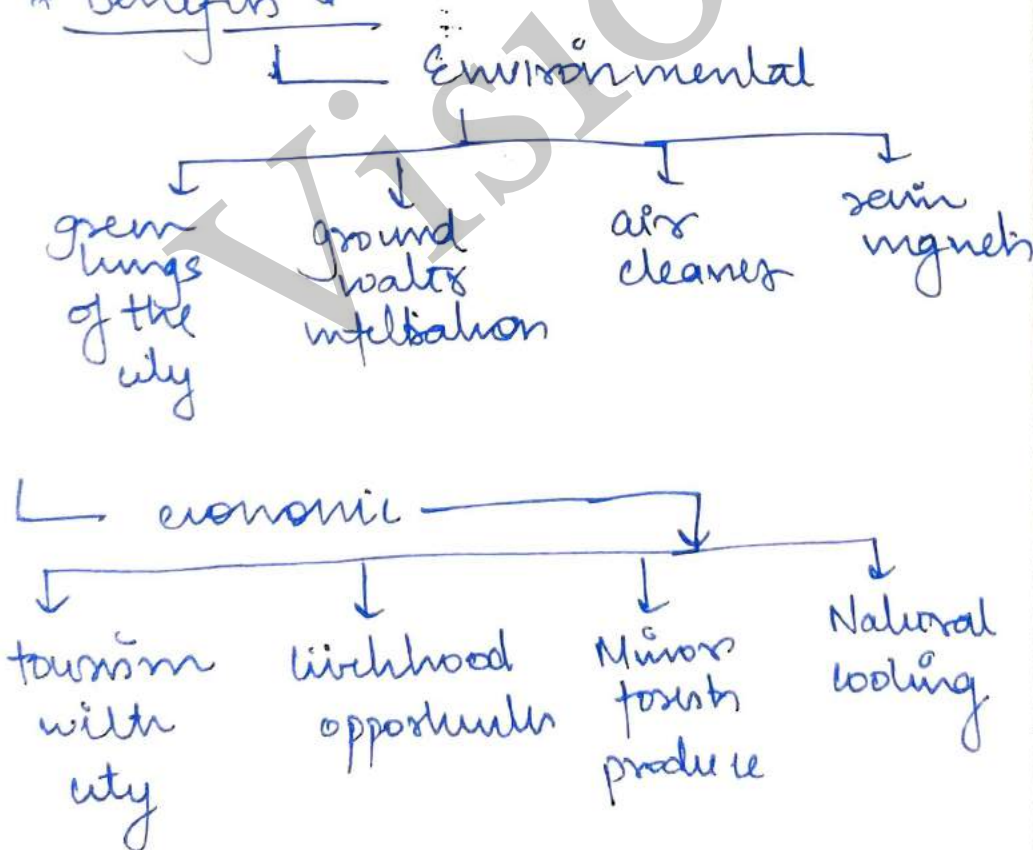 * Benefits
Environmental
green
lungs
of the
city
ground
water
infiltration
air
cleaner
rain
mgnets
economic
tourism
with
city
livelihood
opportunities
Minor
forests
produce
Natural
cooling
Visio